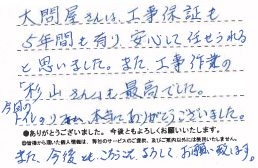 大問屋さんは、工事保証も
5年間も有り安心して任せられる
と思いました。また工事作業の
杉山さんも最高でした。
今回の
トイレのリフォーム、本当にありがとうございました。
●ありがとうございました。今後ともよろしくお願いいたします。
また、今後とも よろしくお願い致します。